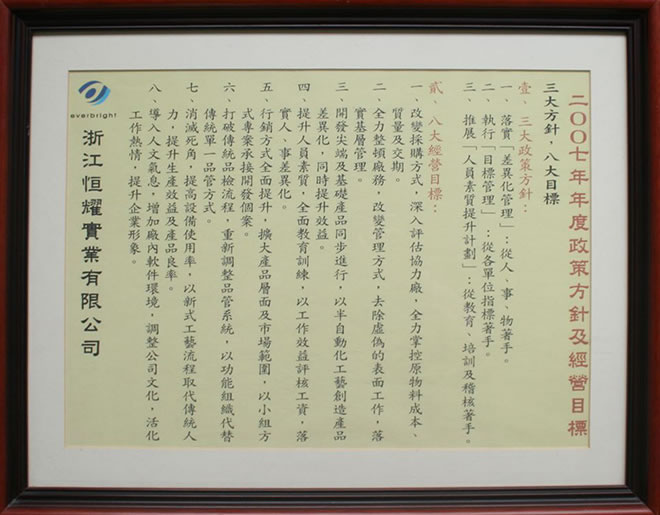 二〇〇七年年度政策方針及經營目標
三大方針，八大目標
壹、三大政策方針：
一、落實「差異化管理」：從人、事、物著手。
二、執行「目標管理」：從各單位指標著手。
三、推展「人員素質提升計劃」：從教育、培訓及稽核著手。
貳、八大經營目標：
一、改變採購方式，深入評估協力廠，全力掌控原物料成本、
質量及交期。
二、全力整頓廠務，改變管理方式，去除虛偽的表面工作，落
實基層管理。
三、開發尖端及基礎產品同步進行，以半自動化工藝創造產品
差異化，同時提升效益。
四、提升人員素質，全面教育訓練，以工作效益評核工資，落
實人、事差異化。
五、行銷方式全面提升，擴大產品層面及市場範圍，以小組方
式專案承接開發個案。
六、打破傳統品檢流程，重新調整品管系統，以功能組織代替
傳統單一品管方式。
七、消滅死角，提高設備使用率，以新式工藝流程取代傳統人
力，提升生產效益及產品良率。
八、導入人文氣息，增加廠內軟件環境，調整公司文化，活化
工作熱情，提升企業形象。
everbright
浙江恒耀實業有限公司